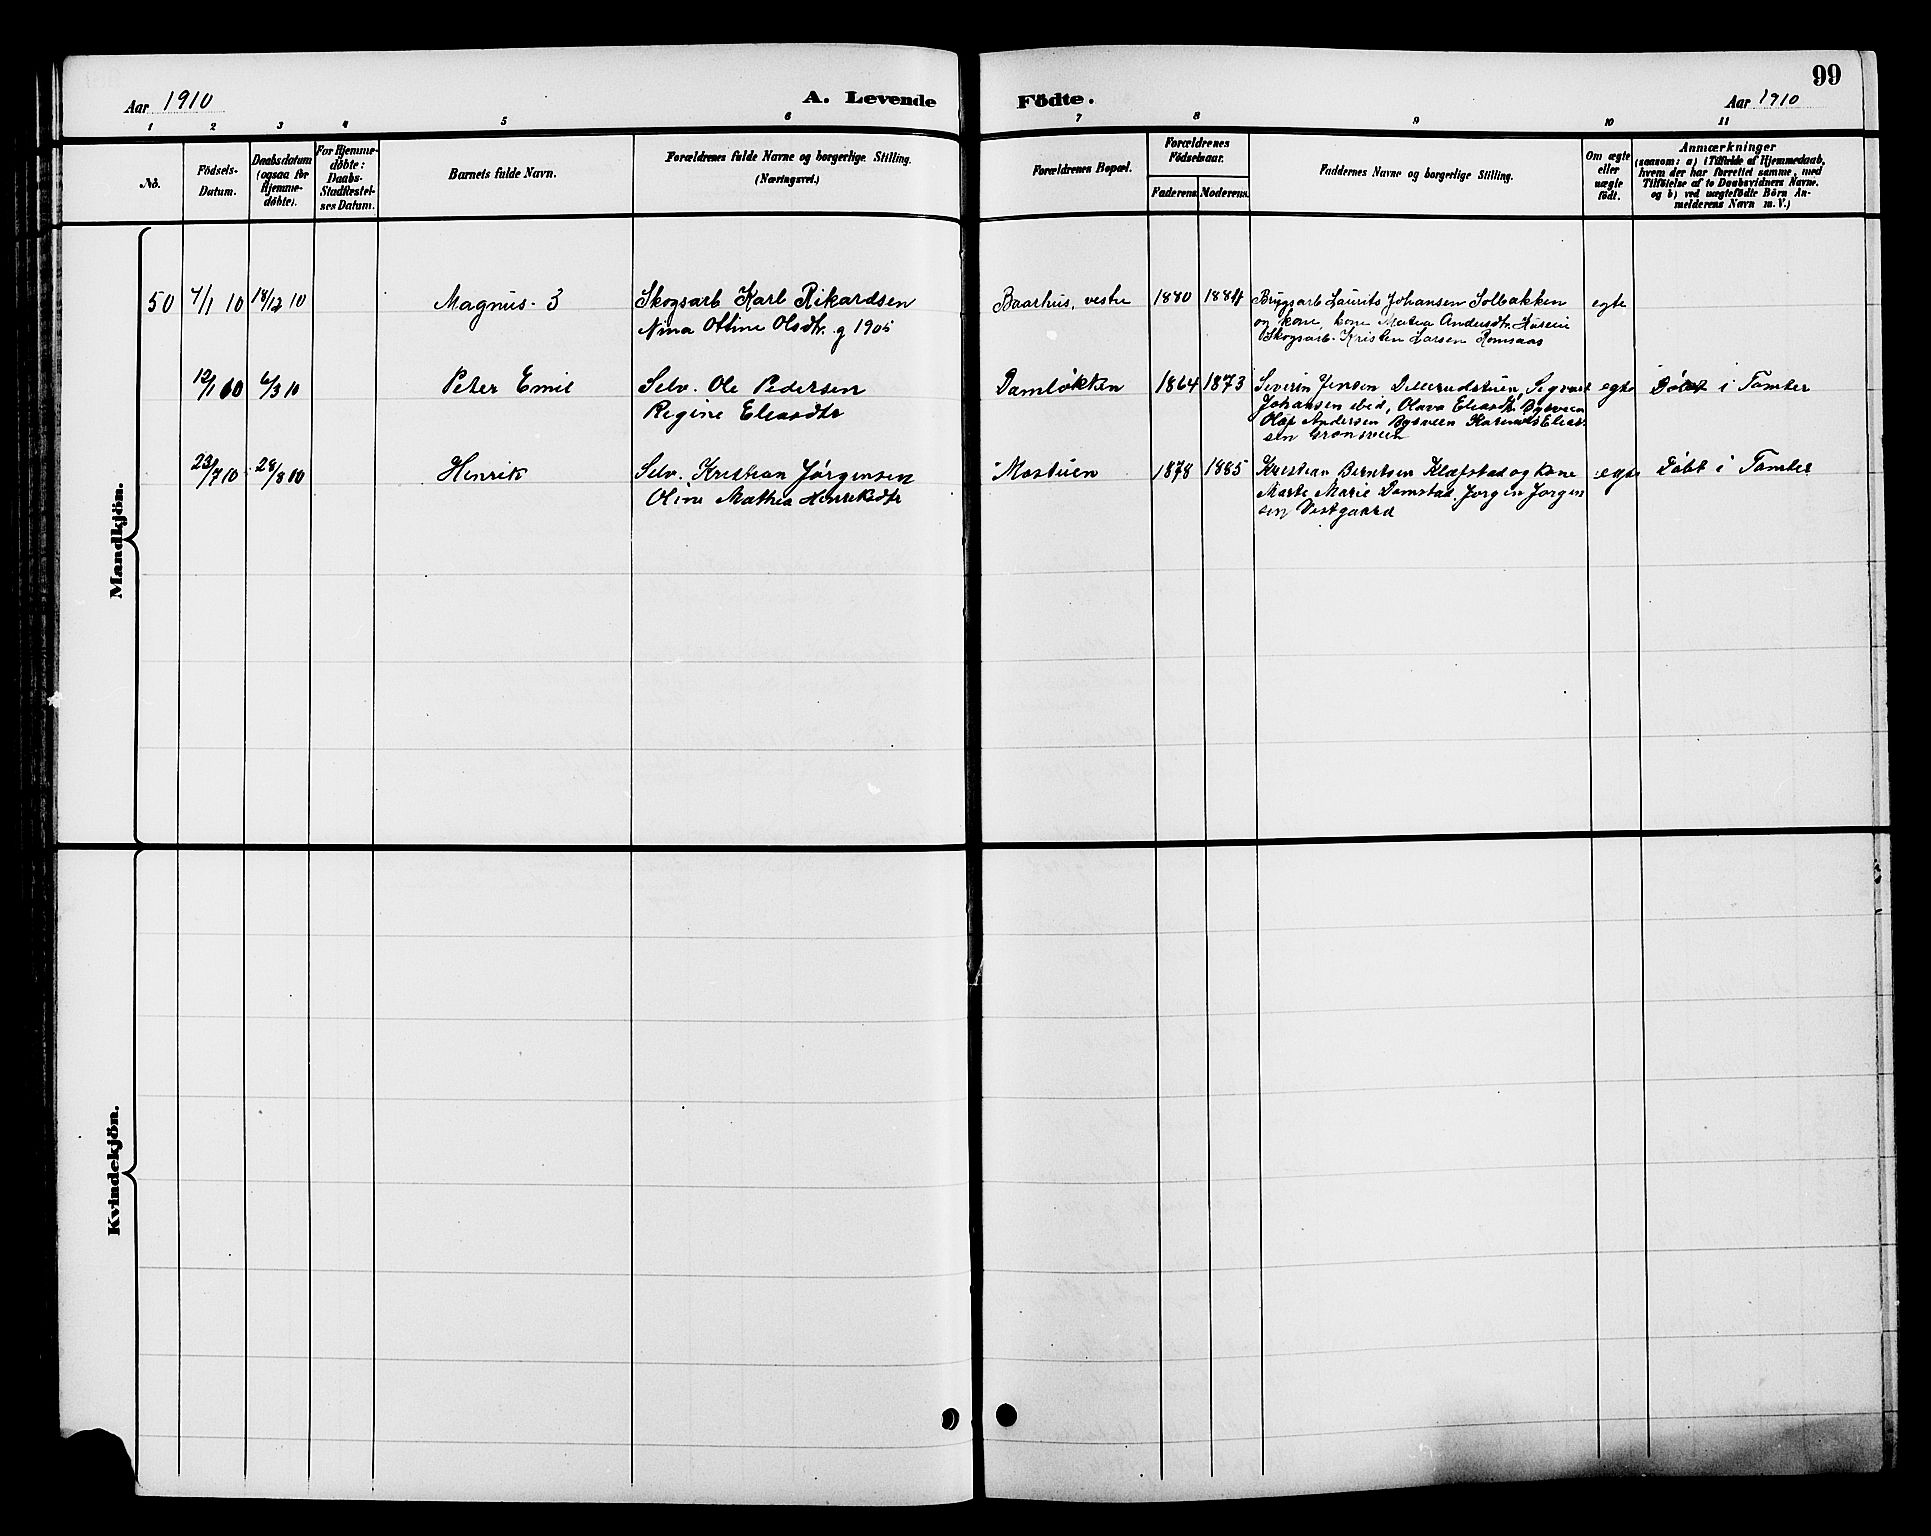 99
Aar 1910 A. Levende Födte. Aar 1910
1 2 3 4 5 6 7 8 9 10 11
No.
Födsels-
Datum.
Daabsdatum
(ogsaa for
Hjemme-
döbte).
For Hjemme-
döbte:
Daabs-
Stadfæstel-
ses Datum.
Barnets fulde Navn.
Forældrenes fulde Navne og borgerlige Stilling.
(Næringsvei.)
Forældrenes Bopæl.
Forældrenes
Födselsaar.
Faderens. Moderens.
Faddernes Navne og borgerlige Stilling.
Om ægte
eller
uægte
født.
Anmærkninger
(saasom: a) i Tilfælde af Hjemmedaab,
hvem der har forrettet samme, med
Tilföielse af to Daabsvidners Navne.
og b) ved uægtefödte Börn An-
melderens Navn m. V.)
Mandkjön.
50 7/1 10 18/12 10 Magnus- 3 Skogsarb Karl Rikardsen Baarhus, vestre 1880 1884 Brugsarb Laurits Johansen Solbakken egte
Nina Ottine Olsdtr. g 1905 og kone, kone Andersdtr.
Skogsarb. Kristen Larsen Romsaas
12/1 10 6/3 10 Peter Emil Selv. Ole Pedersen Damløkken 1864 1873 Severin Jensen Dillerudstuen, Sigvart egte Døbt i Tomter
Regine Eliasdtr Johansen ibid, Olava Eliasdtr. Bysveen
Olaf Andersen Bysveen Elias-
sen Grønsveen
23/7 10 28/8 10 Henrik Selv. Kristian Jørgensen Mostuen 1878 1885 Kristian Berntsen Klæfstad og kone egte Døbt i Tomter
Oline Mathea Henriksdtr Marte Marie Damstad, Jørgen Jørgen
sen Vestgaard
Kvindekjön.